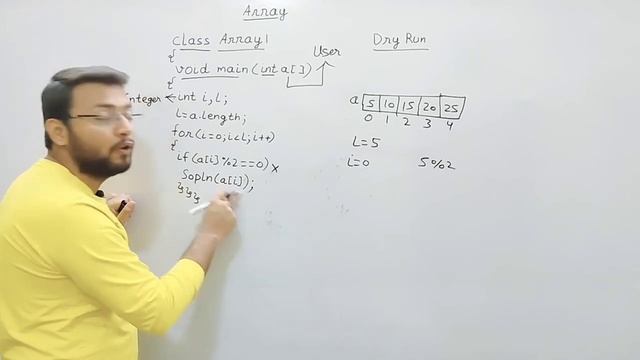 Array
class Array1
{
User
void main(int a[])
{
Integer ← int i,l;
l=a.length;
for(i=0;i<l;i++)
{
if(a[i]%2==0) x
Sopln(a[i]);
}}}
Dry Run
a 5 10 15 20 25
0 1 2 3 4
L=5
i=0 5%2